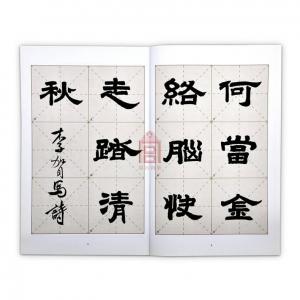 何當金
絡腦快
走踏清
秋
李賀馬詩